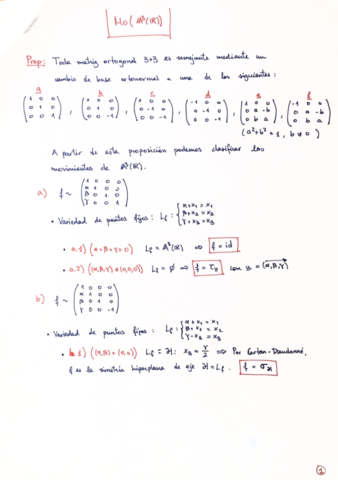 Mo(A³(ℝ))
Prop: Toda matriz ortogonal 3×3 es semejante mediante un
cambio de base ortonormal a una de las siguientes:
a b c d e f
(1 0 0 / 0 1 0 / 0 0 1), (1 0 0 / 0 1 0 / 0 0 -1), (1 0 0 / 0 -1 0 / 0 0 -1), (-1 0 0 / 0 -1 0 / 0 0 -1), (1 0 0 / 0 a -b / 0 b a), (-1 0 0 / 0 a -b / 0 b a)
(a²+b²=1, b≠0)
A partir de esta proposición podemos clasificar los
movimientos de A³(ℝ).
a) f ~ (1 0 0 0 / α 1 0 0 / β 0 1 0 / γ 0 0 1)
• Variedad de puntos fijos: L_f: { α+x₁=x₁ / β+x₂=x₂ / γ+x₃=x₃
• a.1) (α=β=γ=0) L_f = A³(ℝ) ⇒ f = id
• a.2) ((α,β,γ)≠(0,0,0)) L_f = ∅ ⇒ f = τ_u con u = (α,β,γ)
b) f ~ (1 0 0 0 / α 1 0 0 / β 0 1 0 / γ 0 0 -1)
• Variedad de puntos fijos: L_f: { α+x₁=x₁ / β+x₂=x₂ / γ-x₃=x₃
• b.1) ((α,β)=(0,0)) L_f = H: x₃ = γ/2 ⇒ Por Cartan-Dieudonné,
f es la simetría hiperplana de eje H = L_f. f = σ_H
1